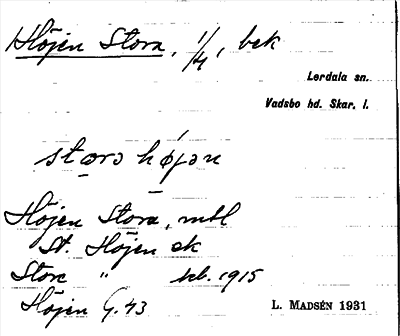 Höjen Stora, 1/4, bek
Lerdala sn.
Vadsbo hd. Skar. l.
stɷrə hǿjən
Höjen Stora, mbl
St. Höjen ek
Stora " kb. 1915
Höjen G. 43
L. MADSÉN 1931